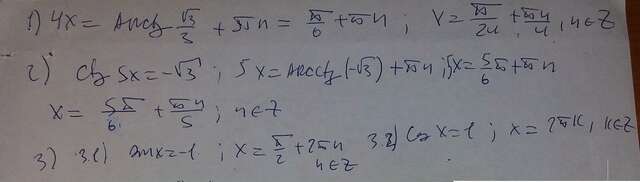 1) 4x = arcctg √3/3 + πn = π/6 + πn ; x = π/24 + πn/4 , n∈Z
2) ctg 5x = -√3 ; 5x = arcctg(-√3) + πn ; 5x = 5/6 π + πn
x = 5π/6 + πn/5 ; n∈Z
3) 3.1) sin x = -1 ; x = π/2 + 2πn 3.2) cos x = 1 ; x = 2πk, k∈Z
n∈Z